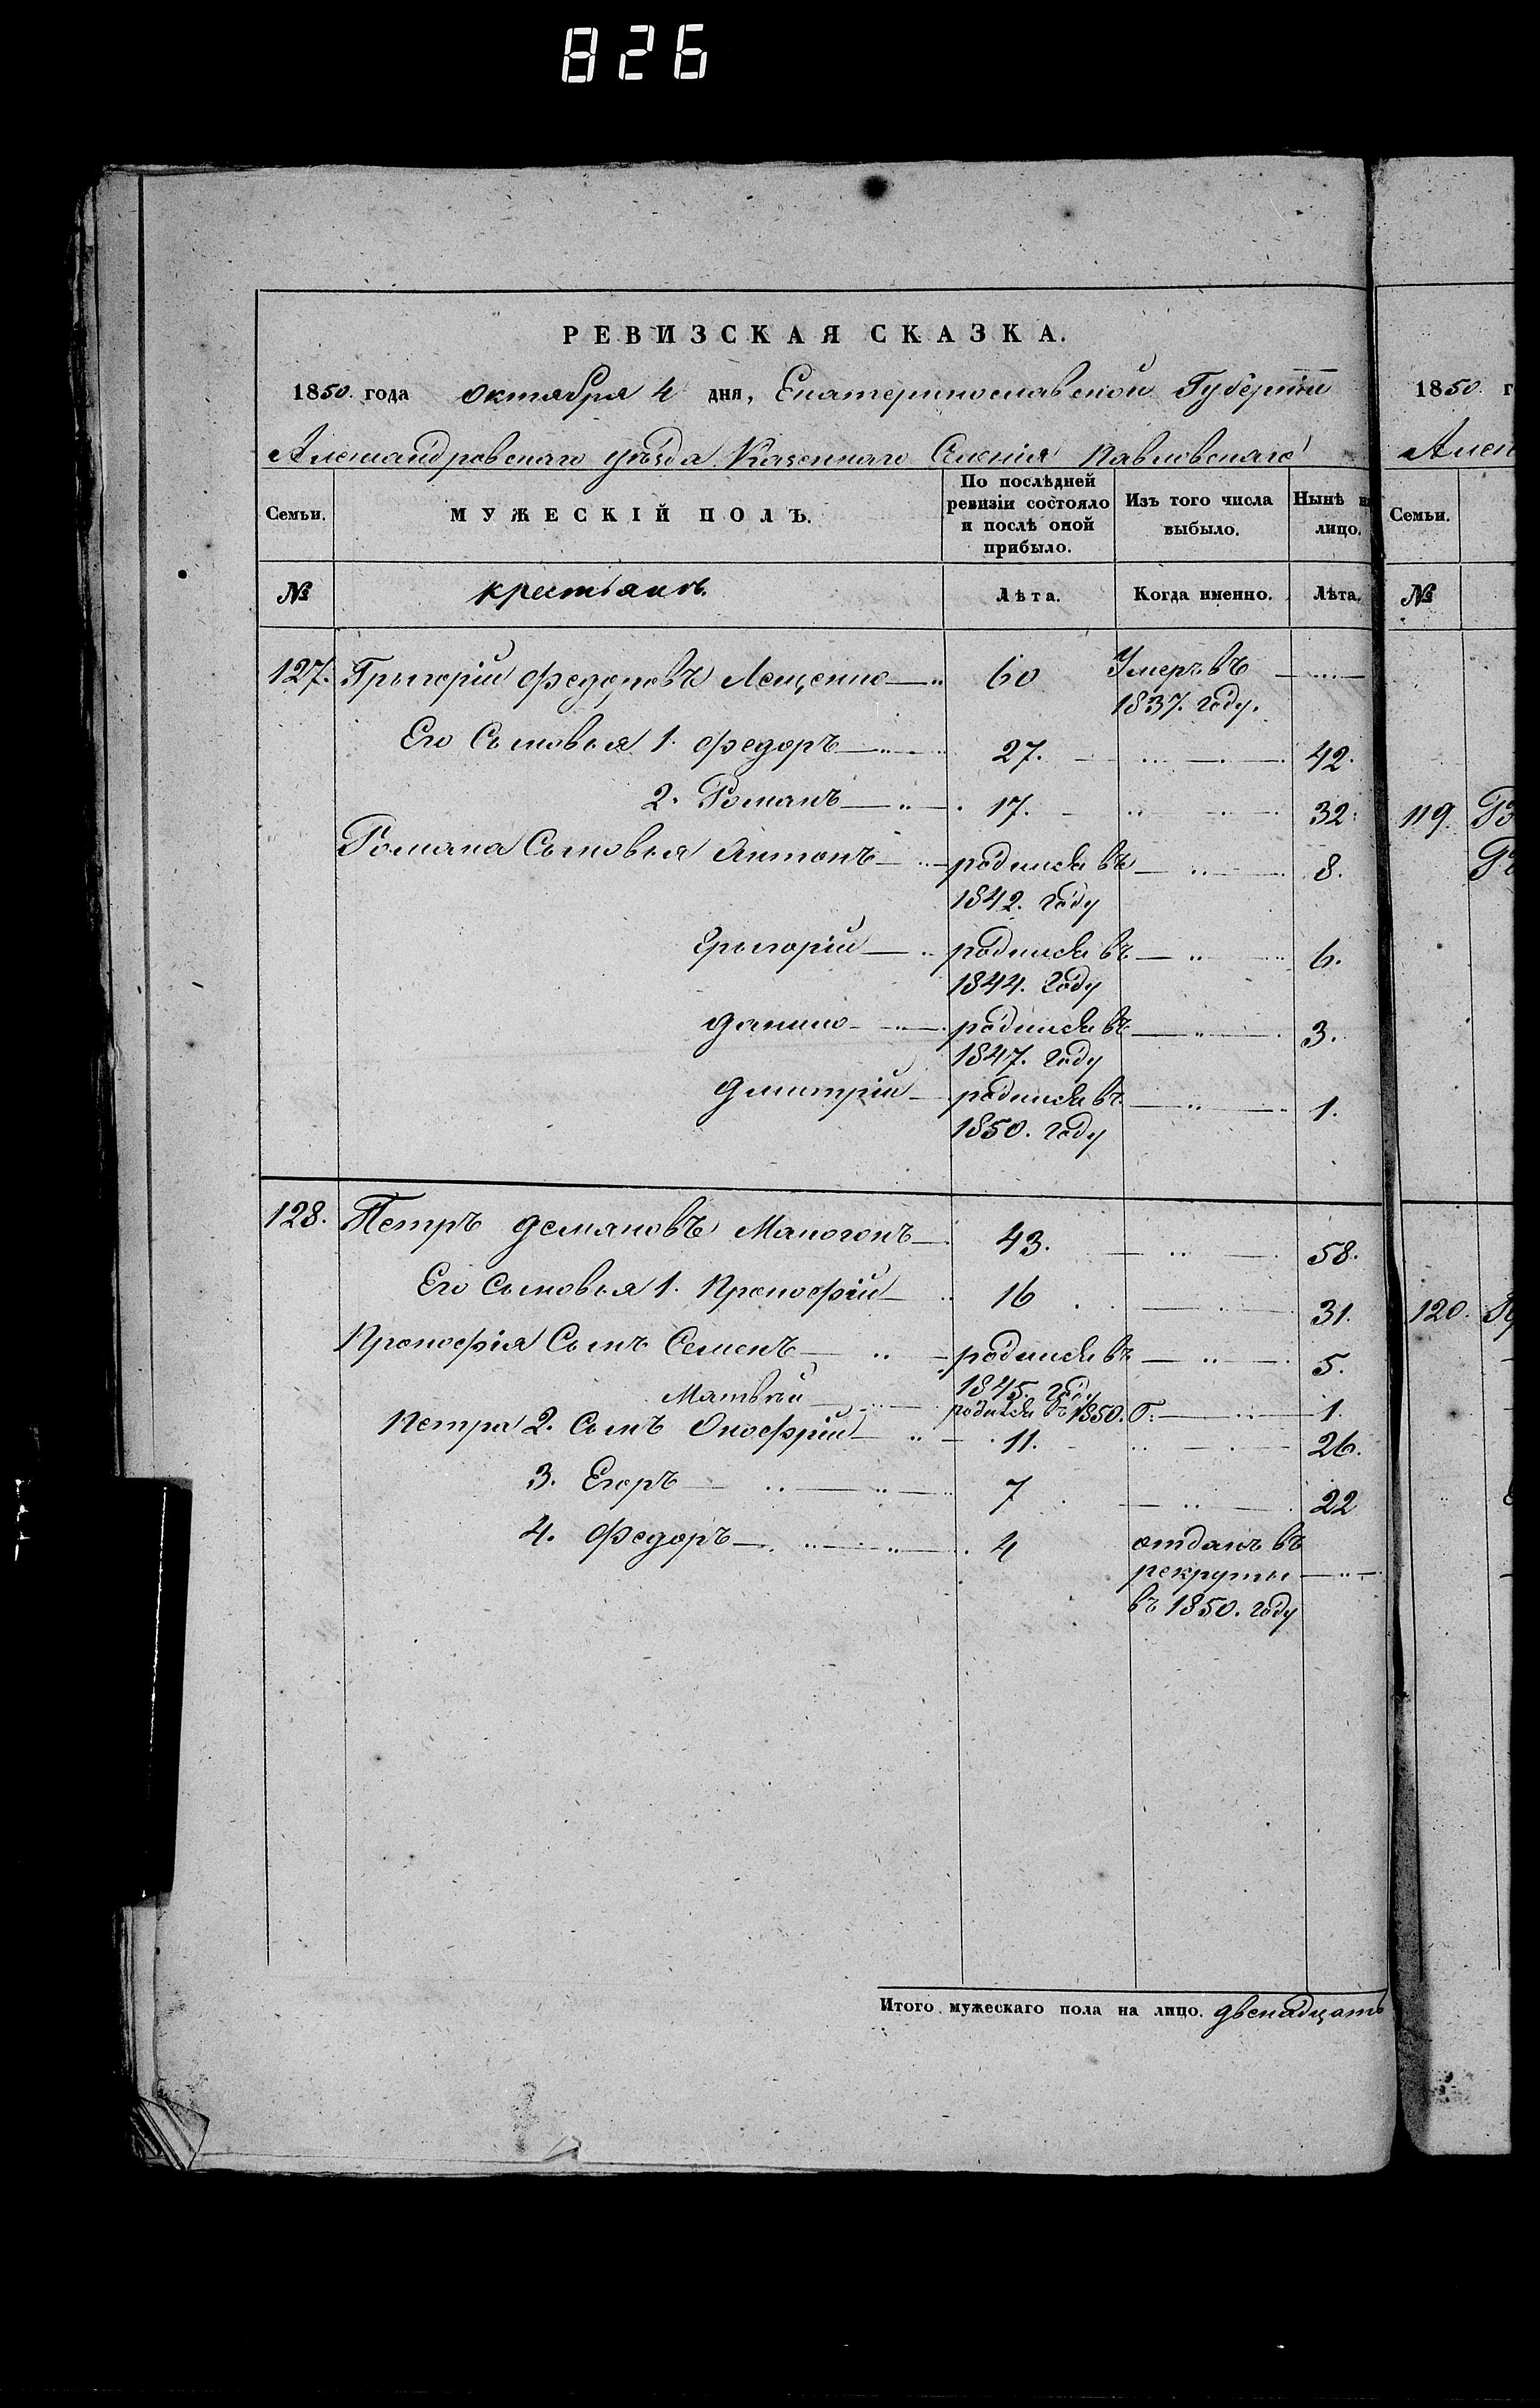 826
РЕВИЗСКАЯ СКАЗКА.
1850. года октября 4 дня, Екатеринославской Губерніи
Александровскаго уѣзда Казеннаго Селенія Павловскаго
Семьи. МУЖЕСКІЙ ПОЛЪ. По послѣдней ревизіи состояло и послѣ оной прибыло. Изъ того числа выбыло. Нынѣ на лицо.
№ крестьянъ. Лѣта. Когда именно. Лѣта.
127. Грыгорій Федоровъ Лещенко 60 Умеръ въ
1837. году.
Его Сыновья 1. Федоръ 27. 42.
2. Романъ 17. 32.
Романа Сыновья Антонъ родился въ 8.
1842. году
Грыгорій родился въ 6.
1844. году
Данило родился въ 3.
1847. году
Дмитрій родился въ 1.
1850. году
128. Петръ Демяновъ Макогонъ 43. 58.
Его Сыновья 1. Прокофій 16 31.
Прокофія Сынъ Семенъ родился въ 5.
1845. году
Матвѣй родился въ 1850. г. 1.
Петра 2. Сынъ Онофрій 11. 26.
3. Егоръ 7 22
4. Федоръ 4 отданъ въ
рекруты
въ 1850. году
Итого мужескаго пола на лицо. двенадцать
1850 г
Семьи.
№
119
120.